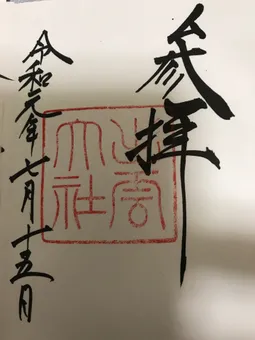 参拝
出雲大社
令和元年七月十五日